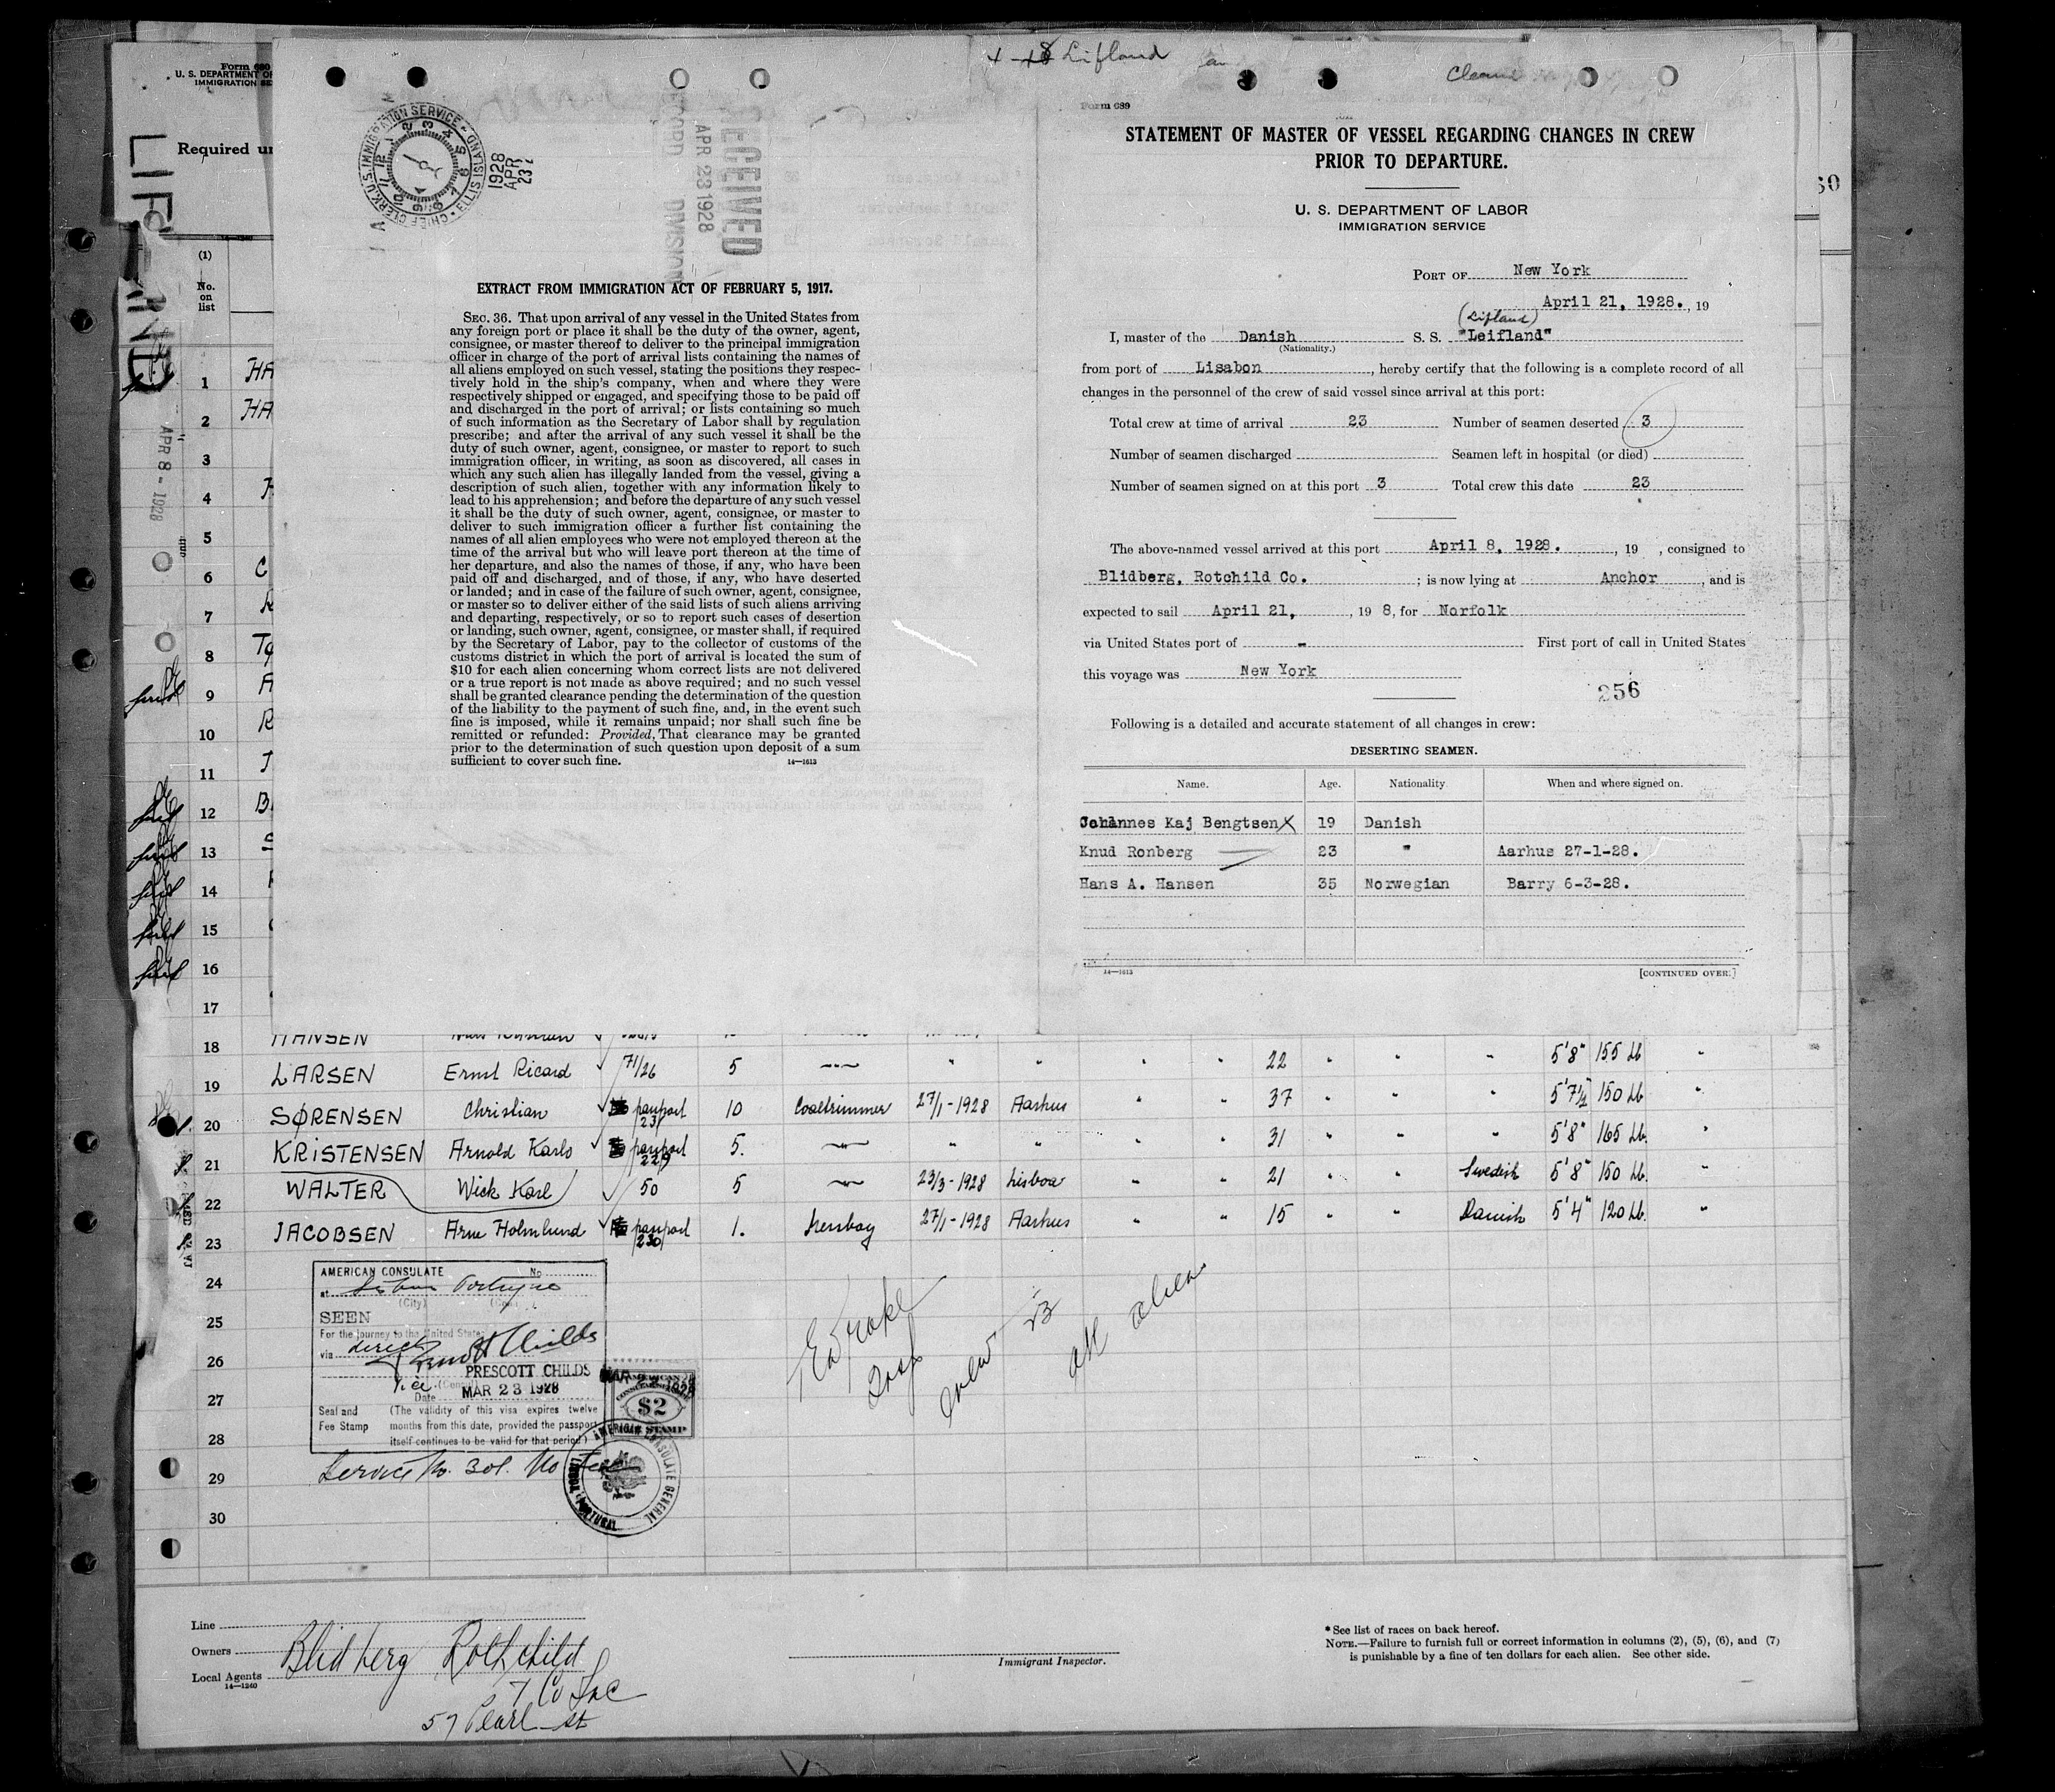 + +8 Lifland
Form 680
U. S. DEPARTMENT OF
IMMIGRATION SE
LIFLAND
Required un
APR 8 - 1928
(1)
No.
on
list
CHIEF CLERK, U.S. IMMIGRATION SERVICE - ELLIS ISLAND
1928
APR
23
RECEIVED
APR 23 1928
RECORD DIVISION
EXTRACT FROM IMMIGRATION ACT OF FEBRUARY 5, 1917.
SEC. 36. That upon arrival of any vessel in the United States from
any foreign port or place it shall be the duty of the owner, agent,
consignee, or master thereof to deliver to the principal immigration
officer in charge of the port of arrival lists containing the names of
all aliens employed on such vessel, stating the positions they respec-
tively hold in the ship's company, when and where they were
respectively shipped or engaged, and specifying those to be paid off
and discharged in the port of arrival; or lists containing so much
of such information as the Secretary of Labor shall by regulation
prescribe; and after the arrival of any such vessel it shall be the
duty of such owner, agent, consignee, or master to report to such
immigration officer, in writing, as soon as discovered, all cases in
which any such alien has illegally landed from the vessel, giving a
description of such alien, together with any information likely to
lead to his apprehension; and before the departure of any such vessel
it shall be the duty of such owner, agent, consignee, or master to
deliver to such immigration officer a further list containing the
names of all alien employees who were not employed thereon at the
time of the arrival but who will leave port thereon at the time of
her departure, and also the names of those, if any, who have been
paid off and discharged, and of those, if any, who have deserted
or landed; and in case of the failure of such owner, agent, consignee,
or master so to deliver either of the said lists of such aliens arriving
and departing, respectively, or so to report such cases of desertion
or landing, such owner, agent, consignee, or master shall, if required
by the Secretary of Labor, pay to the collector of customs of the
customs district in which the port of arrival is located the sum of
$10 for each alien concerning whom correct lists are not delivered
or a true report is not made as above required; and no such vessel
shall be granted clearance pending the determination of the question
of the liability to the payment of such fine, and, in the event such
fine is imposed, while it remains unpaid; nor shall such fine be
remitted or refunded: Provided, That clearance may be granted
prior to the determination of such question upon deposit of a sum
sufficient to cover such fine. 14—1613
Form 689
STATEMENT OF MASTER OF VESSEL REGARDING CHANGES IN CREW
PRIOR TO DEPARTURE.
U. S. DEPARTMENT OF LABOR
IMMIGRATION SERVICE
PORT OF New York
April 21, 1928. , 19
(Lifland)
I, master of the Danish S. S. "Leifland"
(Nationality.)
from port of Lisabon , hereby certify that the following is a complete record of all
changes in the personnel of the crew of said vessel since arrival at this port:
Total crew at time of arrival 23 Number of seamen deserted 3
Number of seamen discharged Seamen left in hospital (or died)
Number of seamen signed on at this port 3 Total crew this date 23
The above-named vessel arrived at this port April 8, 1928. , 19 , consigned to
Blidberg, Rotchild Co. ; is now lying at Anchor , and is
expected to sail April 21, , 19 8, for Norfolk
via United States port of - First port of call in United States
this voyage was New York
256
Following is a detailed and accurate statement of all changes in crew:
DESERTING SEAMEN.
Name. Age. Nationality When and where signed on.
Johannes Kaj Bengtsen X 19 Danish
Knud Ronberg 23 " Aarhus 27-1-28.
Hans A. Hansen 35 Norwegian Barry 6-3-28.
14—1613 [CONTINUED OVER.]
1 HA
2 HA
3
4
5
6 C
7
8
9 A
10 R
11
12 B
13
14
15
16
17
18 HANSEN
19 LARSEN Ernst Ricard 71/26 5 " " " " 22 " " " 5'8" 155 Lb "
20 SØRENSEN Christian passport 231 10 Coaltrimmer 27/1-1928 Aarhus " " 37 " " " 5'7½ 150 Lb "
21 KRISTENSEN Arnold Karlo passport 229 5. " " " " 31 " " " 5'8" 165 Lb. "
22 WALTER Wick Karl 50 5 23/3-1928 Lisboa " " 21 " " Swedish 5'8" 150 Lb. "
23 JACOBSEN Arne Holmlund passport 230 1. Messboy 27/1-1928 Aarhus " " 15 " " Danish 5'4" 120 Lb. "
24
25
26
27
28
29
30
AMERICAN CONSULATE No
at
(City)
SEEN
For the journey to the United States
via direct
PRESCOTT CHILDS
Vice (Consul)
Date MAR 23 1928
Seal and
Fee Stamp
(The validity of this visa expires twelve
months from this date, provided the passport
itself continues to be valid for that period)
Service No. 301. No Fee
$2
AMERICAN CONSULATE GENERAL
LISBON, PORTUGAL
crew 23
all alien
Line
Owners
Local Agents
14—1240
Blidberg Rothchild
Co Inc
57 Pearl st
Immigrant Inspector.
* See list of races on back hereof.
NOTE.—Failure to furnish full or correct information in columns (2), (5), (6), and (7)
is punishable by a fine of ten dollars for each alien. See other side.